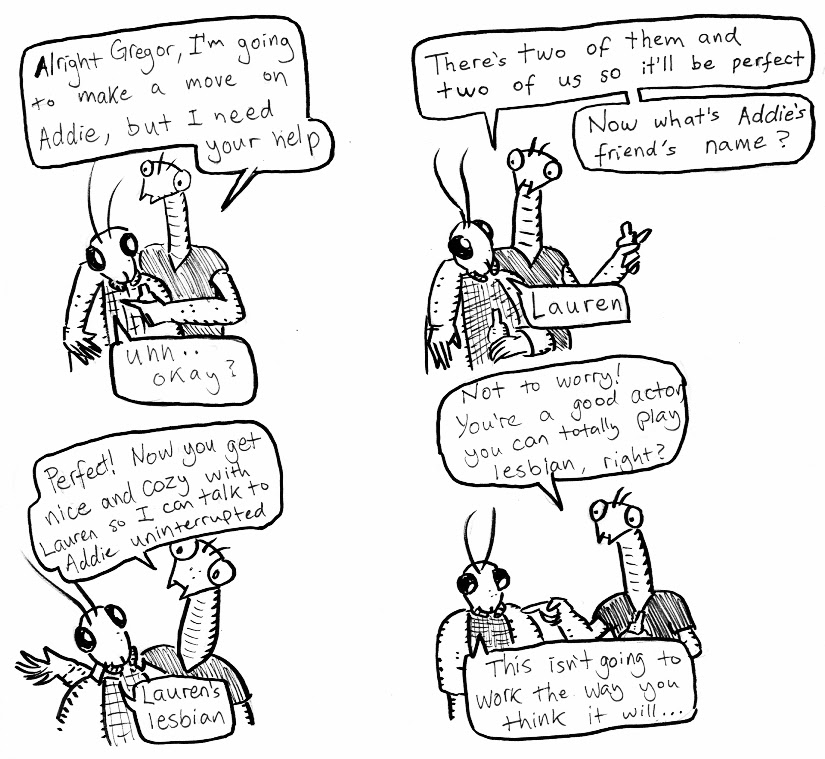 Alright Gregor, I'm going
to make a move on
Addie, but I need
your help
uhh..
okay?
There's two of them and
two of us so it'll be perfect
Now what's Addie's
friend's name?
Lauren
Perfect! Now you get
nice and cozy with
Lauren so I can talk to
Addie uninterrupted
Lauren's
lesbian
Not to worry!
You're a good actor
you can totally play
lesbian, right?
This isn't going to
work the way you
think it will...